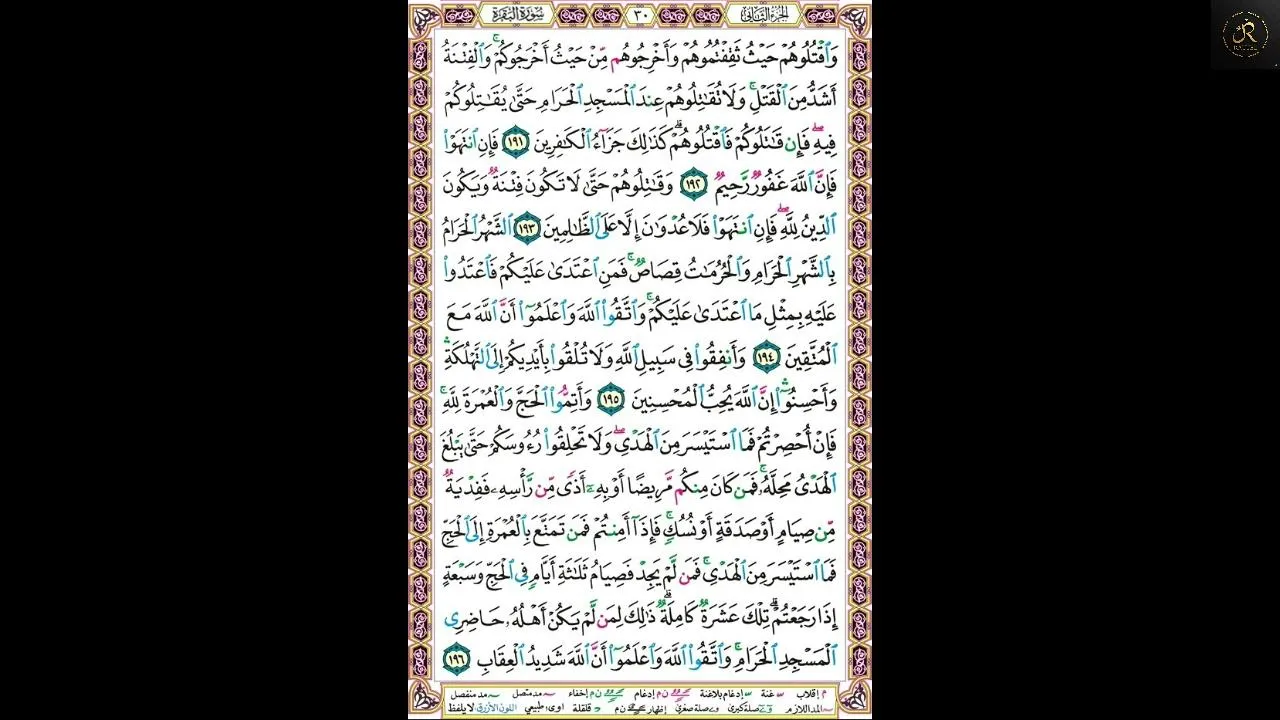 الجزء الثاني ٣٠ سورة البقرة
وَٱقۡتُلُوهُمۡ حَيۡثُ ثَقِفۡتُمُوهُمۡ وَأَخۡرِجُوهُم مِّنۡ حَيۡثُ أَخۡرَجُوكُمۡۚ وَٱلۡفِتۡنَةُ
أَشَدُّ مِنَ ٱلۡقَتۡلِۚ وَلَا تُقَٰتِلُوهُمۡ عِندَ ٱلۡمَسۡجِدِ ٱلۡحَرَامِ حَتَّىٰ يُقَٰتِلُوكُمۡ
فِيهِۖ فَإِن قَٰتَلُوكُمۡ فَٱقۡتُلُوهُمۡۗ كَذَٰلِكَ جَزَآءُ ٱلۡكَٰفِرِينَ ١٩١ فَإِنِ ٱنتَهَوۡاْ
فَإِنَّ ٱللَّهَ غَفُورٞ رَّحِيمٞ ١٩٢ وَقَٰتِلُوهُمۡ حَتَّىٰ لَا تَكُونَ فِتۡنَةٞ وَيَكُونَ
ٱلدِّينُ لِلَّهِۖ فَإِنِ ٱنتَهَوۡاْ فَلَا عُدۡوَٰنَ إِلَّا عَلَى ٱلظَّٰلِمِينَ ١٩٣ ٱلشَّهۡرُ ٱلۡحَرَامُ
بِٱلشَّهۡرِ ٱلۡحَرَامِ وَٱلۡحُرُمَٰتُ قِصَاصٞۚ فَمَنِ ٱعۡتَدَىٰ عَلَيۡكُمۡ فَٱعۡتَدُواْ
عَلَيۡهِ بِمِثۡلِ مَا ٱعۡتَدَىٰ عَلَيۡكُمۡۚ وَٱتَّقُواْ ٱللَّهَ وَٱعۡلَمُوٓاْ أَنَّ ٱللَّهَ مَعَ
ٱلۡمُتَّقِينَ ١٩٤ وَأَنفِقُواْ فِي سَبِيلِ ٱللَّهِ وَلَا تُلۡقُواْ بِأَيۡدِيكُمۡ إِلَى ٱلتَّهۡلُكَةِۛ
وَأَحۡسِنُوٓاْۛ إِنَّ ٱللَّهَ يُحِبُّ ٱلۡمُحۡسِنِينَ ١٩٥ وَأَتِمُّواْ ٱلۡحَجَّ وَٱلۡعُمۡرَةَ لِلَّهِۚ
فَإِنۡ أُحۡصِرۡتُمۡ فَمَا ٱسۡتَيۡسَرَ مِنَ ٱلۡهَدۡيِۖ وَلَا تَحۡلِقُواْ رُءُوسَكُمۡ حَتَّىٰ يَبۡلُغَ
ٱلۡهَدۡيُ مَحِلَّهُۥۚ فَمَن كَانَ مِنكُم مَّرِيضًا أَوۡ بِهِۦٓ أَذٗى مِّن رَّأۡسِهِۦ فَفِدۡيَةٞ
مِّن صِيَامٍ أَوۡ صَدَقَةٍ أَوۡ نُسُكٖۚ فَإِذَآ أَمِنتُمۡ فَمَن تَمَتَّعَ بِٱلۡعُمۡرَةِ إِلَى ٱلۡحَجِّ
فَمَا ٱسۡتَيۡسَرَ مِنَ ٱلۡهَدۡيِۚ فَمَن لَّمۡ يَجِدۡ فَصِيَامُ ثَلَٰثَةِ أَيَّامٖ فِي ٱلۡحَجِّ وَسَبۡعَةٍ
إِذَا رَجَعۡتُمۡۗ تِلۡكَ عَشَرَةٞ كَامِلَةٞۗ ذَٰلِكَ لِمَن لَّمۡ يَكُنۡ أَهۡلُهُۥ حَاضِرِي
ٱلۡمَسۡجِدِ ٱلۡحَرَامِۚ وَٱتَّقُواْ ٱللَّهَ وَٱعۡلَمُوٓاْ أَنَّ ٱللَّهَ شَدِيدُ ٱلۡعِقَابِ ١٩٦
م إقلاب غنة إدغام بلاغنة ن م إدغام ن م إخفاء مد متصل مد منفصل
المد اللازم صلة كبرى صلة صغرى إظهار ن م قلقلة اوى: طبيعي اللون الأزرق لا يلفظ